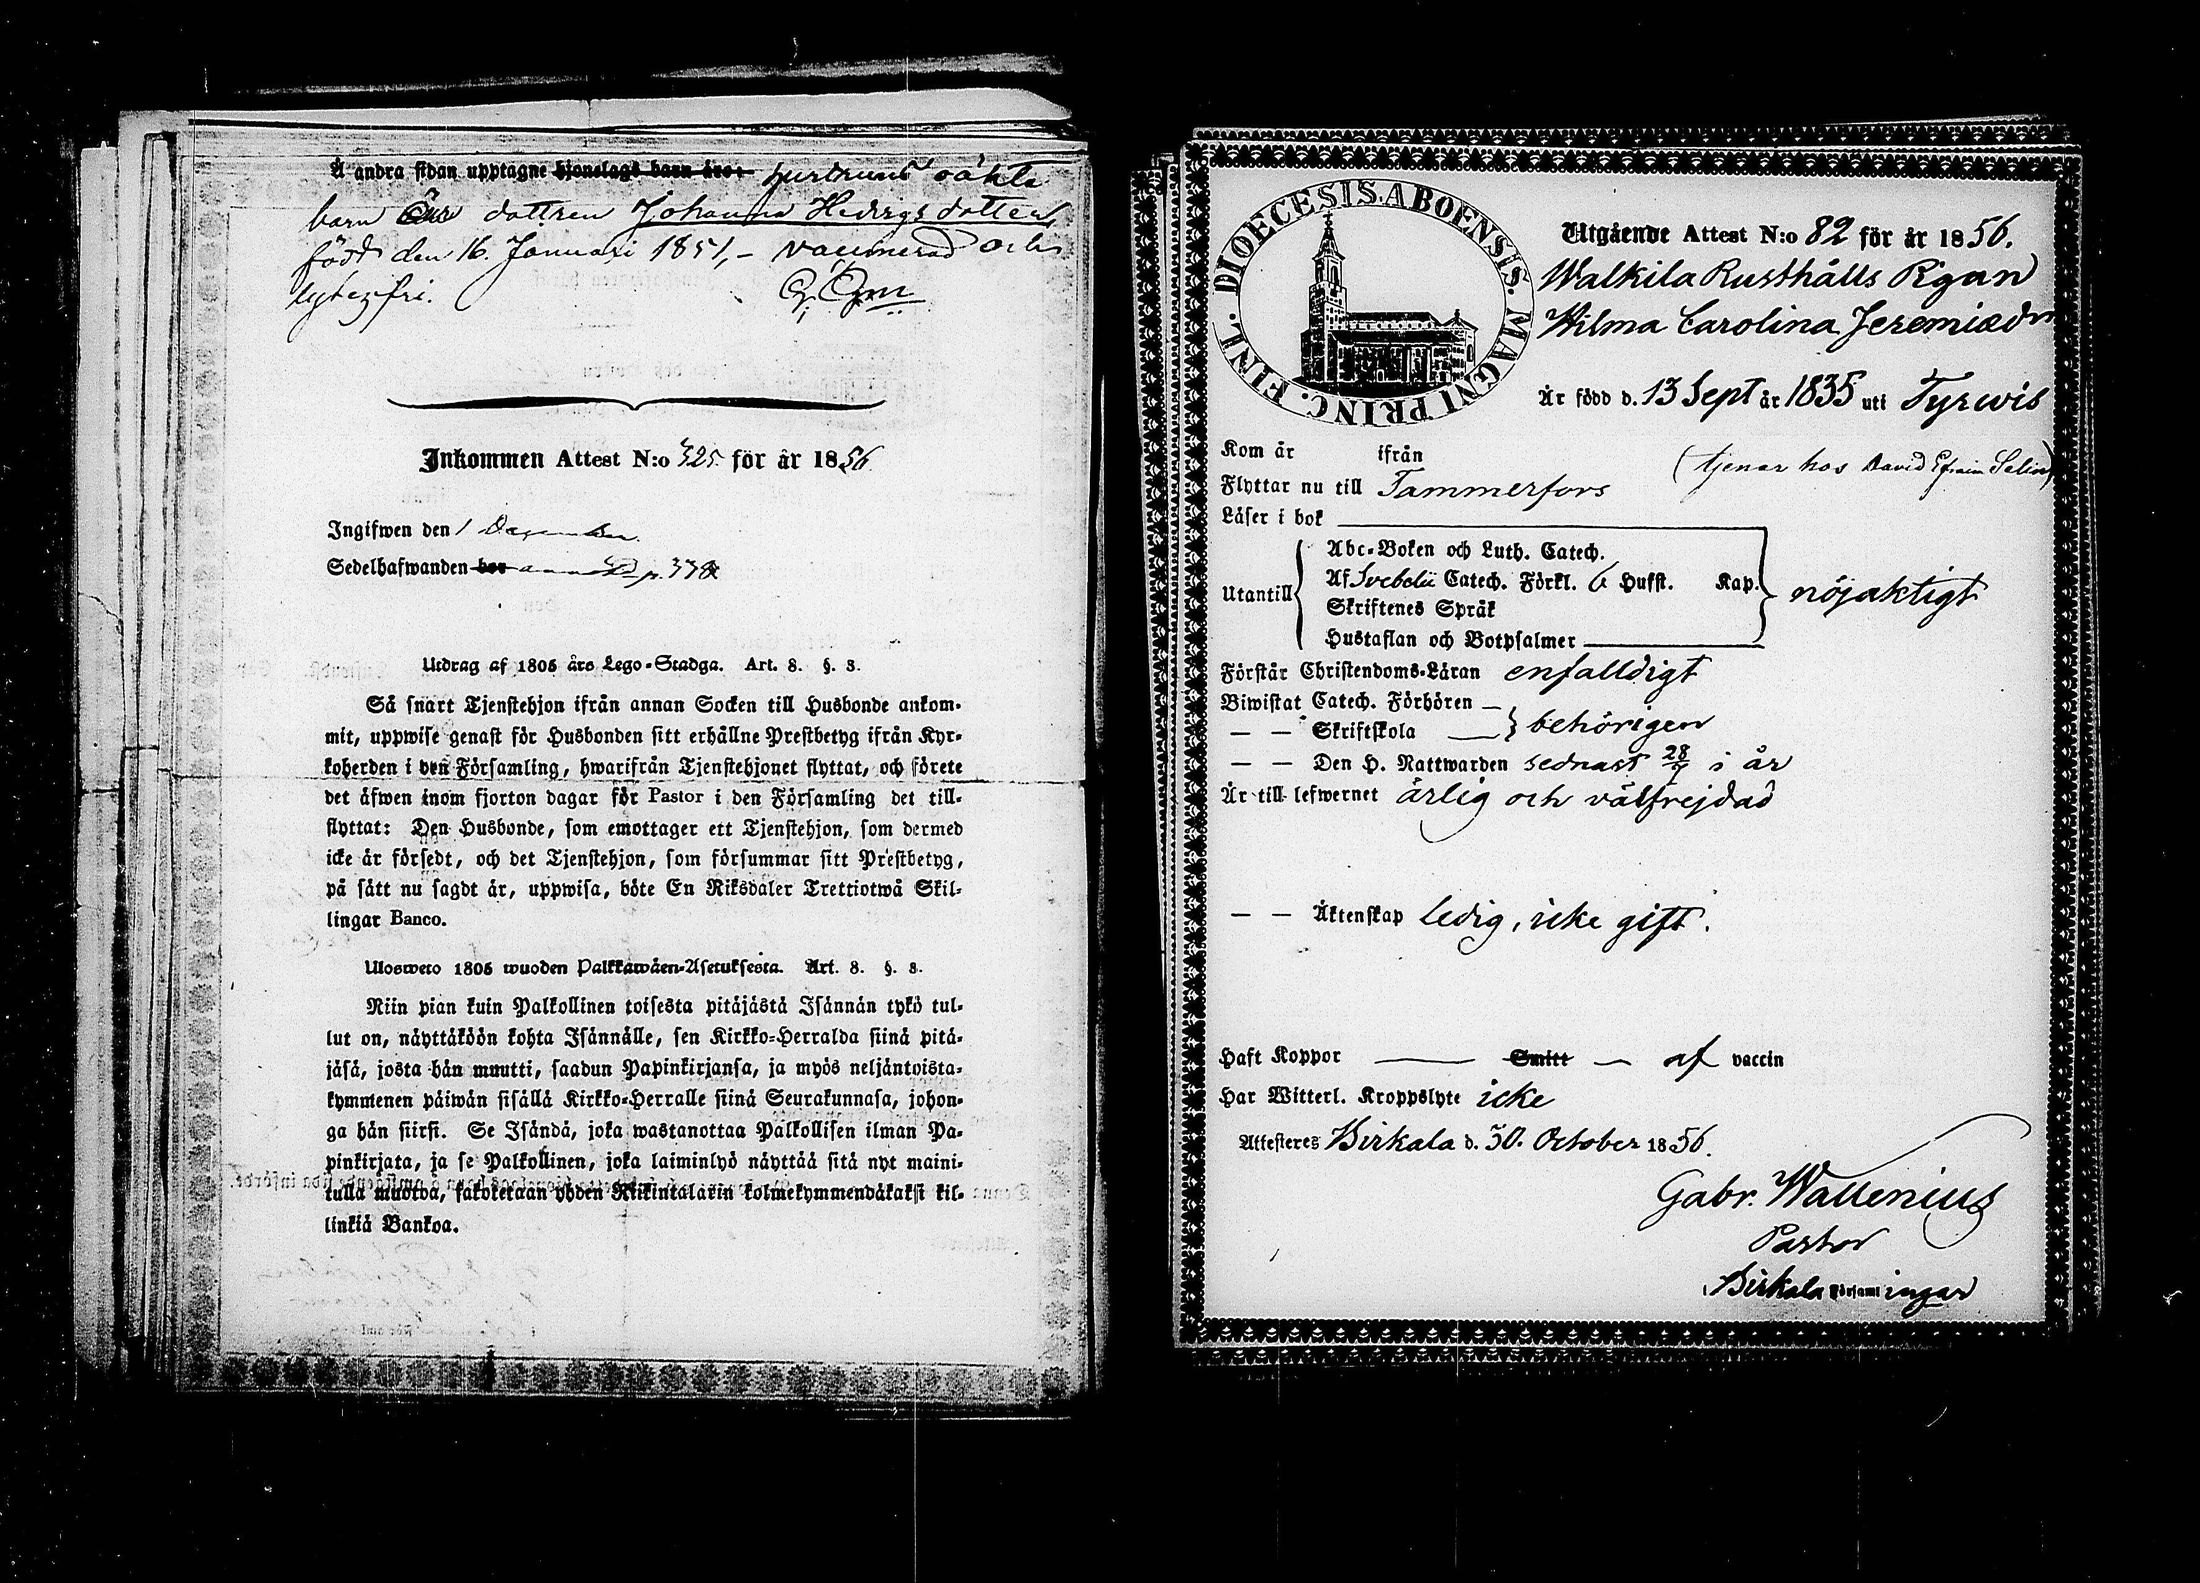 Å andra sidan upptagne hjonelags barn äro: hustruns oäkta
barn Är dottren Johanna Hedvigsdotter
född den 16. Januari 1851, – vaccinerad och
lytesfri.
Inkommen Attest N:o 325. för år 1856
Ingifwen den 1 December
Sedelhafwanden bor p. 338
Utdrag af 1805 års Lego-Stadga. Art. 8. §. 3.
Så snart Tjenstehjon ifrån annan Socken till Husbonde ankom-
mit, uppwise genast för Husbonden sitt erhållne Prestbetyg ifrån Kyr-
koherden i den Församling, hwarifrån Tjenstehjonet flyttat, och förete
det äfwen inom fjorton dagar för Pastor i den Församling det till-
flyttat: Den Husbonde, som emottager ett Tjenstehjon, som dermed
icke är försedt, och det Tjenstehjon, som försummar sitt Prestbetyg,
på sätt nu sagdt är, uppwisa, böte En Riksdaler Trettiotwå Skil-
lingar Banco.
Ulosweto 1805 wuoden Palkkawäen-Asetuksesta. Art. 8. §. 3.
Niin pian kuin Palkollinen toisesta pitäjästä Isännän tykö tul-
lut on, näyttäköön kohta Isännälle, sen Kirkko-Herralda siinä pitä-
jäsä, josta hän muutti, saadun Papinkirjansa, ja myös neljäntoista-
kymmenen päiwän sisällä Kirkko-Herralle siinä Seurakunnasa, johon-
ga hän siirsi. Se Isändä, joka wastanottaa Palkollisen ilman Pa-
pinkirjata, ja se Palkollinen, joka laiminlyö näyttää sitä nyt maini-
tulla muotoa, sakotetaan yhden Riikintalarin kolmekymmendäkaksi kil-
linkiä Bankoa.
DIOECESIS. ABOENSIS. MAGNI PRINC. FINL.
Utgående Attest N:o 82 för år 1856.
Walkila Rusthålls Pgan
Wilma Carolina Jeremiædr
Är född d. 13 Sept år 1835 uti Tyrwis
Kom år ifrån (tjenar hos David Efraim Selin)
Flyttar nu till Tammerfors
Läser i bok
Utantill
Abc-Boken och Luth. Catech.
Af Svebelii Catech. Förkl. 6 Hufst. Kap. nöjaktigt
Skriftenes Språk
Hustaflan och Botpsalmer
Förstår Christendoms-Läran enfalldigt
Biwistat Catech. Förhören –
— — Skriftskola — behörigen
— — Den H. Nattwarden sednast 28/9 i år
Är till lefwernet ärlig och välfrejdad
— — Äktenskap ledig, icke gift.
Haft Koppor — Smitt — af vaccin
Har Witterl. Kroppslyte icke
Attesteres Birkala d. 30. October 1856.
Gabr. Wallenius
Pastor
Birkala Församlingar